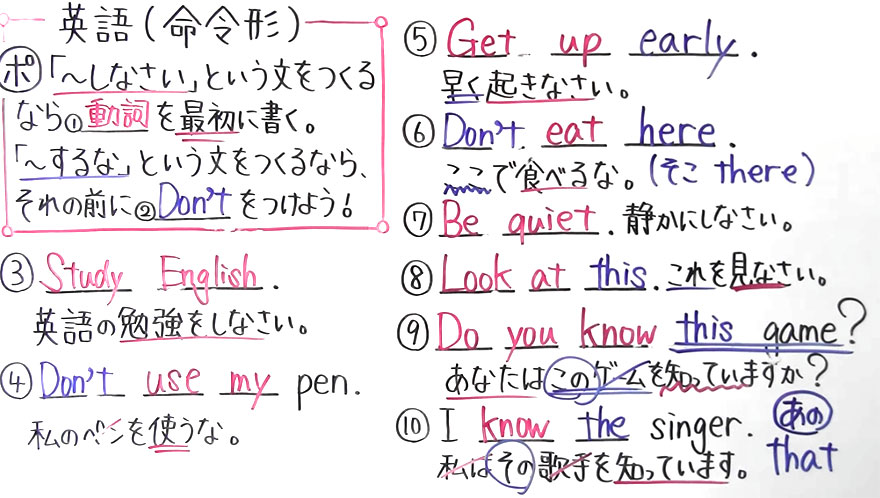 英語(命令形)
ポ「〜しなさい」という文をつくる
なら①動詞を最初に書く。
「〜するな」という文をつくるなら、
それの前に②Don'tをつけよう!
③ Study English.
英語の勉強をしなさい。
④ Don't use my pen.
私のペンを使うな。
⑤ Get up early.
早く起きなさい。
⑥ Don't eat here.
ここで食べるな。(そこ there)
⑦ Be quiet. 静かにしなさい。
⑧ Look at this. これを見なさい。
⑨ Do you know this game?
あなたはこのゲームを知っていますか?
⑩ I know the singer. あの
私はその歌手を知っています。 that